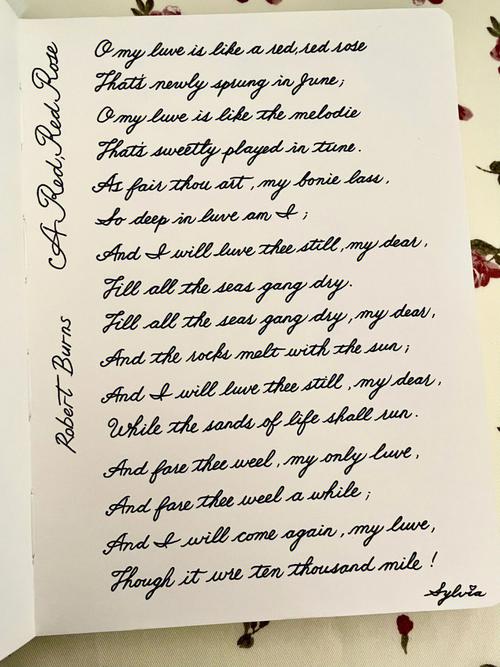 A Red, Red Rose
Robert Burns
O my luve is like a red, red rose
That's newly sprung in June;
O my luve is like the melodie
That's sweetly played in tune.
As fair thou art, my bonie lass,
So deep in luve am I;
And I will luve thee still, my dear,
Till all the seas gang dry.
Till all the seas gang dry, my dear,
And the rocks melt with the sun;
And I will luve thee still, my dear,
While the sands of life shall run.
And fare thee weel, my only luve,
And fare thee weel a while;
And I will come again, my luve,
Though it wre ten thousand mile!
Sylvia